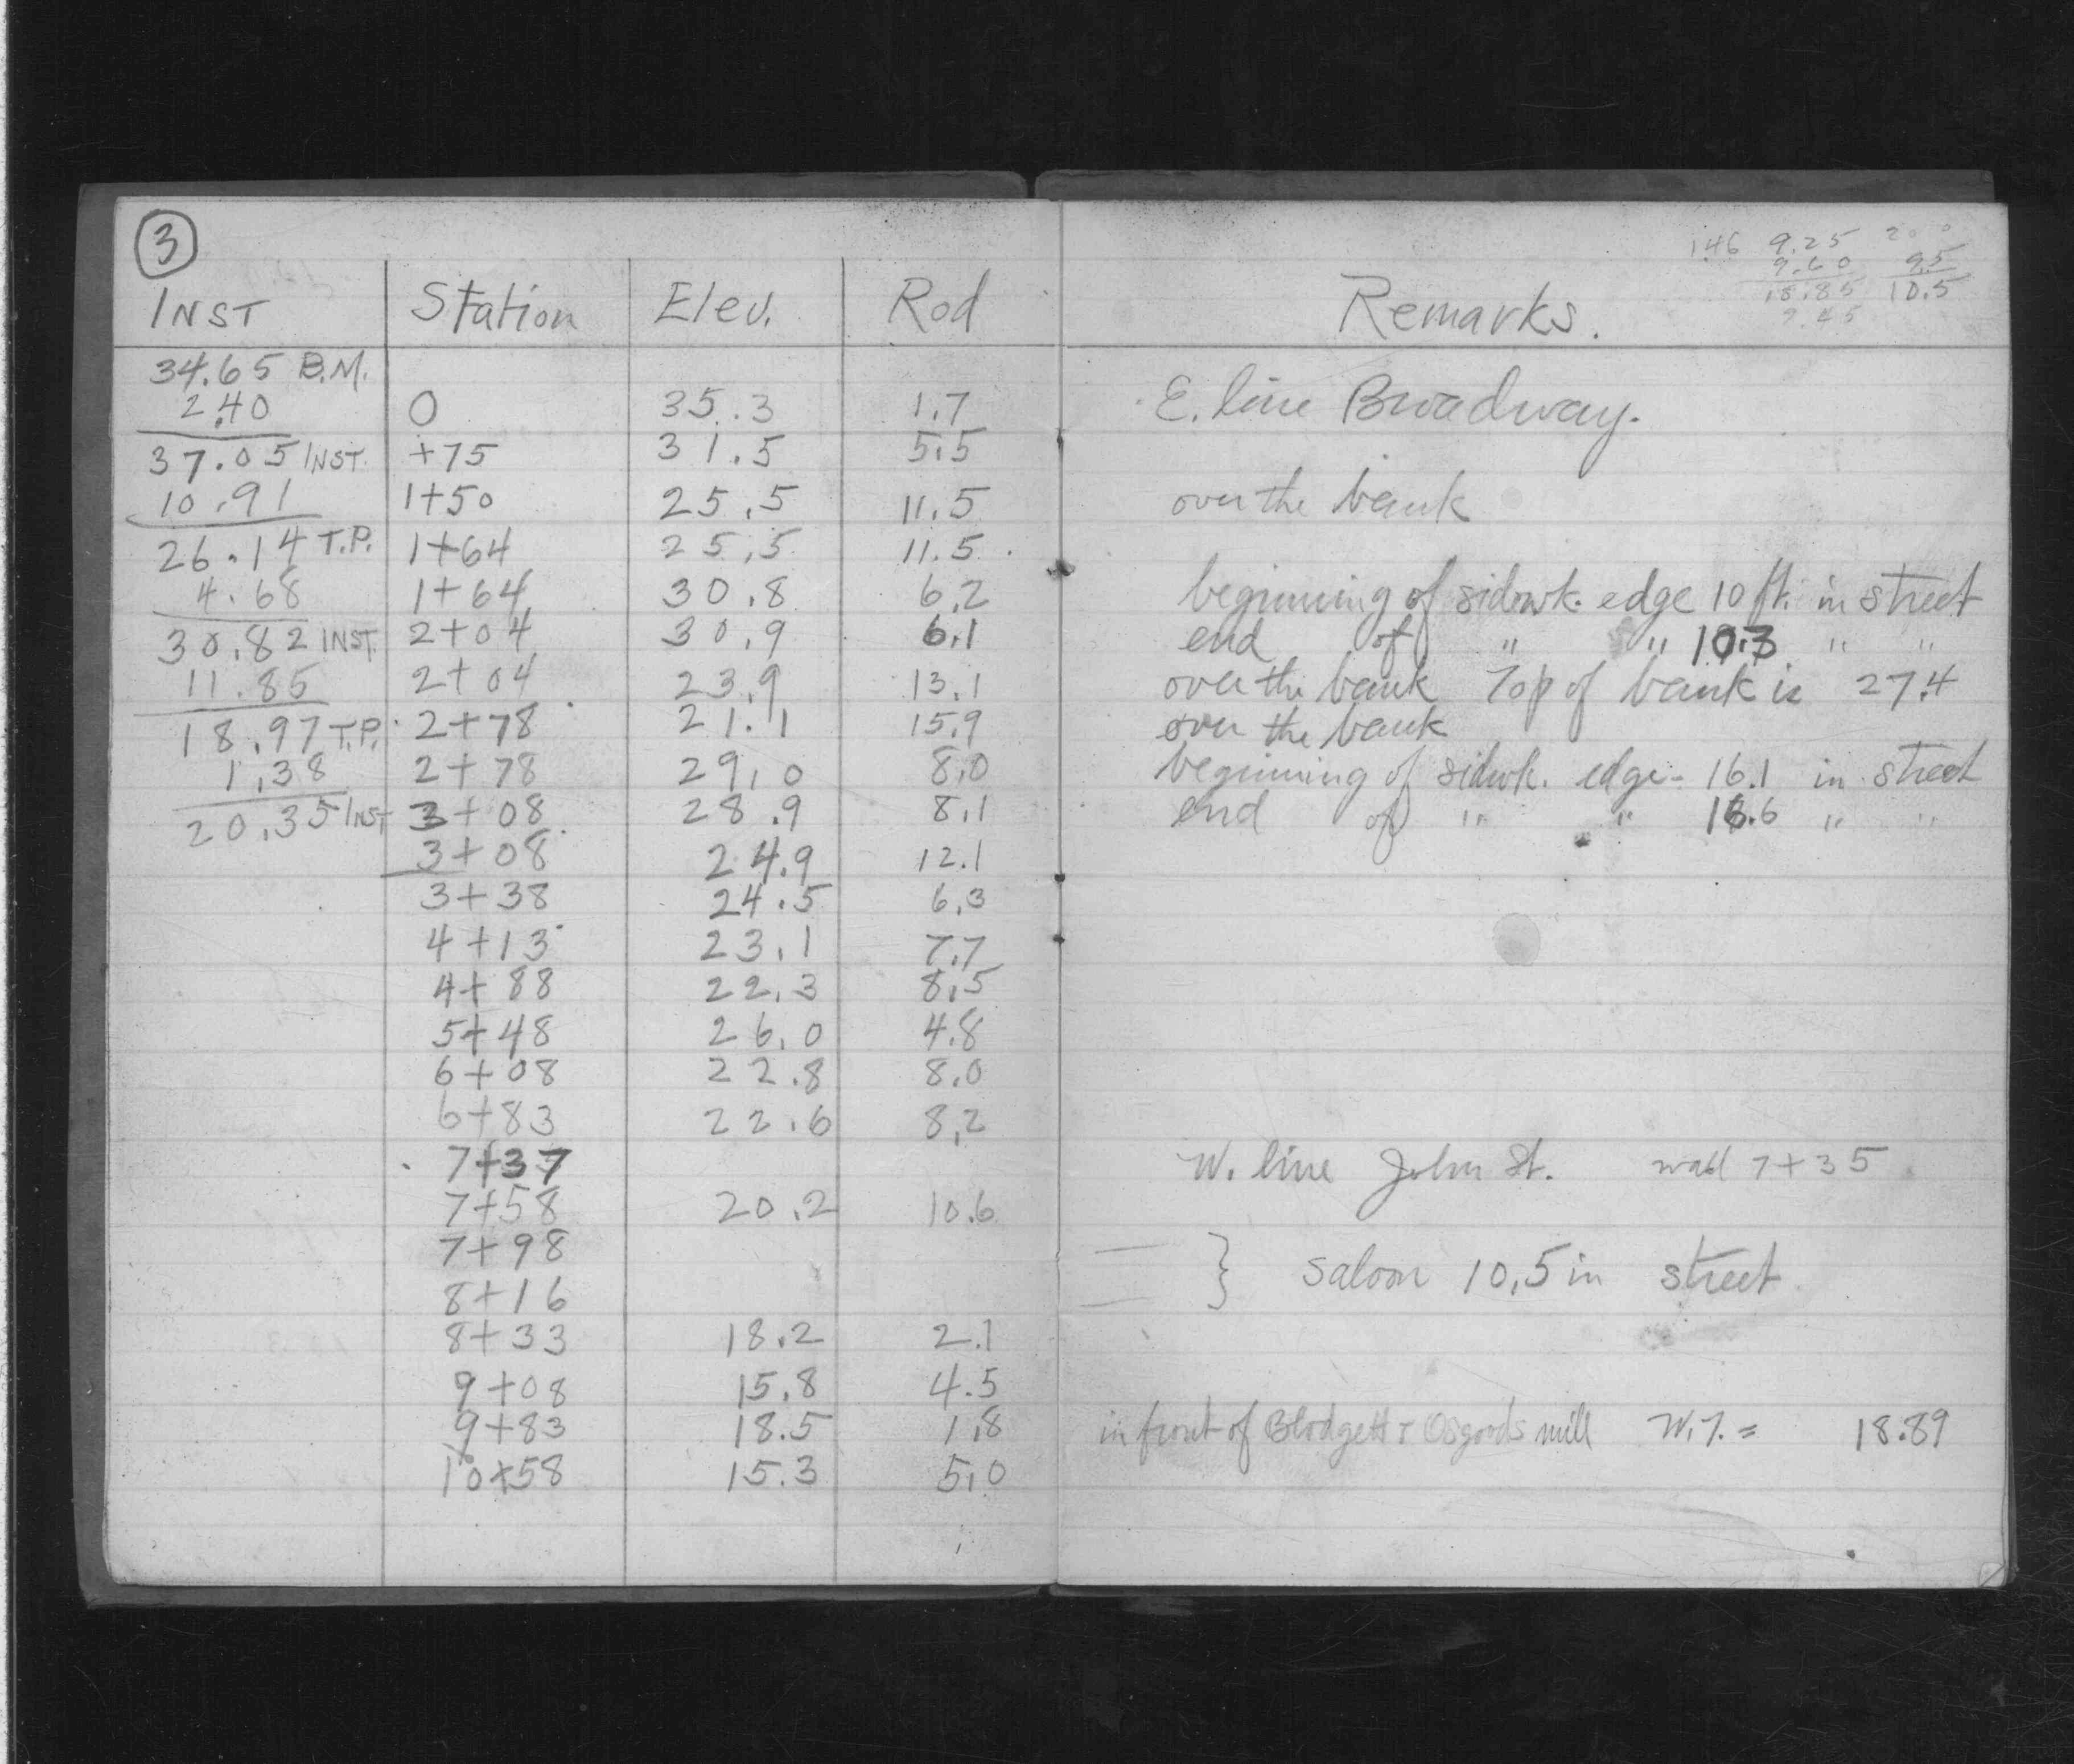 3
146 9.25 20.0
9.60 9.5
18.85 10.5
9.45
INST Station Elev. Rod Remarks.
34.65 B.M.
2.40 0 35.3 1.7 E. line Broadway.
37.05 INST. +75 31.5 5.5
10.91 1+50 25.5 11.5 over the bank
26.14 T.P. 1+64 25.5 11.5
4.68 1+64 30.8 6.2 beginning of sidewk. edge 10 ft. in street
30.82 INST. 2+04 30.9 6.1 end of " " 10.3 " "
11.85 2+04 23.9 13.1 over the bank Top of bank is 27.4
18.97 T.P. 2+78 21.1 15.9 over the bank
1.38 2+78 29.0 8.0 beginning of sidwk. edge - 16.1 in street
20.35 Inst 3+08 28.9 8.1 end of " " 16.6 " "
3+08 24.9 12.1
3+38 24.5 6.3
4+13 23.1 7.7
4+88 22.3 8.5
5+48 26.0 4.8
6+08 22.8 8.0
6+83 22.6 8.2
7+37 W. line John St. wall 7+35
7+58 20.2 10.6
7+98
} saloon 10.5 in street
8+16
8+33 18.2 2.1
9+08 15.8 4.5
9+83 18.5 1.8 in front of Blodgett & Osgoods mill W.T. = 18.89
10+58 15.3 5.0